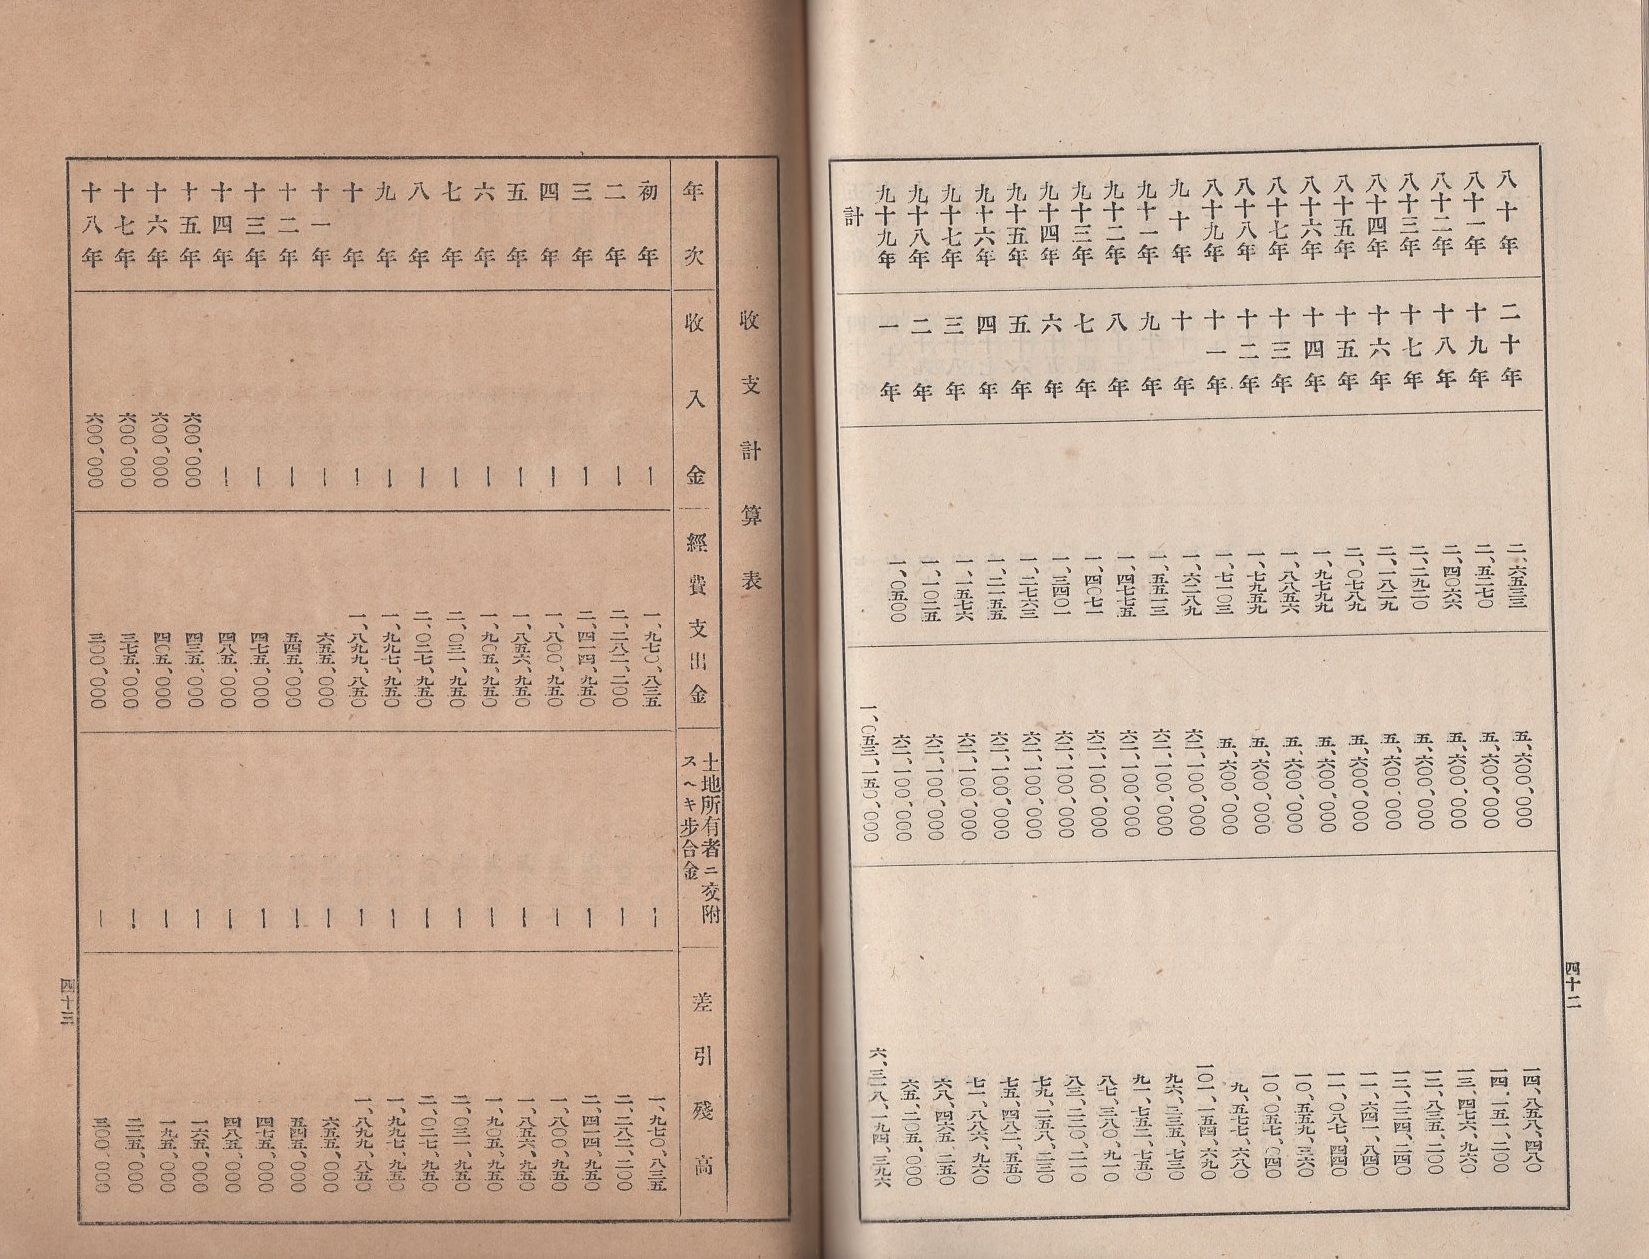 四十二
八十年 二十年 二、六五三三 五、六〇〇、〇〇〇 一四、八五八、四八〇
八十一年 十九年 二、五二七〇 五、六〇〇、〇〇〇 一四、一五一、二〇〇
八十二年 十八年 二、四〇六六 五、六〇〇、〇〇〇 一三、四七六、九六〇
八十三年 十七年 二、二九二〇 五、六〇〇、〇〇〇 一二、八三五、二〇〇
八十四年 十六年 二、一八二九 五、六〇〇、〇〇〇 一二、二二四、二四〇
八十五年 十五年 二、〇七八九 五、六〇〇、〇〇〇 一一、六四一、八四〇
八十六年 十四年 一、九七九九 五、六〇〇、〇〇〇 一一、〇八七、四四〇
八十七年 十三年 一、八八五六 五、六〇〇、〇〇〇 一〇、五五九、三六〇
八十八年 十二年 一、七九五九 五、六〇〇、〇〇〇 一〇、〇五七、〇四〇
八十九年 十一年 一、七一〇三 五、六〇〇、〇〇〇 九、五七七、六八〇
九十年 十年 一、六二八九 六二、一〇〇、〇〇〇 一〇一、一五四、六九〇
九十一年 九年 一、五五一三 六二、一〇〇、〇〇〇 九六、三三五、七三〇
九十二年 八年 一、四七七五 六二、一〇〇、〇〇〇 九一、七五二、七五〇
九十三年 七年 一、四〇七一 六二、一〇〇、〇〇〇 八七、三八〇、九一〇
九十四年 六年 一、三四〇一 六二、一〇〇、〇〇〇 八三、二二〇、二一〇
九十五年 五年 一、二七六三 六二、一〇〇、〇〇〇 七九、二五八、二三〇
九十六年 四年 一、二一五五 六二、一〇〇、〇〇〇 七五、四八二、五五〇
九十七年 三年 一、一五七六 六二、一〇〇、〇〇〇 七一、八八六、九六〇
九十八年 二年 一、一〇二五 六二、一〇〇、〇〇〇 六八、四六五、二五〇
九十九年 一年 一、〇五〇〇 六二、一〇〇、〇〇〇 六五、二〇五、〇〇〇
計 一、〇五三、一五〇、〇〇〇 六、三一八、一九四、三九六
收支計算表
年次 收入金 經費支出金 土地所有者ニ交附スヘキ步合金 差引殘高
初年 ー 一、九七〇、八三五 ー 一、九七〇、八三五
二年 ー 二、二八二、二〇〇 ー 二、二八二、二〇〇
三年 ー 二、四一四、九五〇 ー 二、四一四、九五〇
四年 ー 一、八〇〇、九五〇 ー 一、八〇〇、九五〇
五年 ー 一、八五六、九五〇 ー 一、八五六、九五〇
六年 ー 一、九〇五、九五〇 ー 一、九〇五、九五〇
七年 ー 二、〇三一、九五〇 ー 二、〇三一、九五〇
八年 ー 二、〇二七、九五〇 ー 二、〇二七、九五〇
九年 ー 一、九九七、九五〇 ー 一、九九七、九五〇
十年 ー 一、八九九、八五〇 ー 一、八九九、八五〇
十一年 ー 六五五、〇〇〇 ー 六五五、〇〇〇
十二年 ー 五四五、〇〇〇 ー 五四五、〇〇〇
十三年 ー 四七五、〇〇〇 ー 四七五、〇〇〇
十四年 ー 四八五、〇〇〇 ー 四八五、〇〇〇
十五年 六〇〇、〇〇〇 四三五、〇〇〇 ー 一六五、〇〇〇
十六年 六〇〇、〇〇〇 四〇五、〇〇〇 ー 一九五、〇〇〇
十七年 六〇〇、〇〇〇 三七五、〇〇〇 ー 二二五、〇〇〇
十八年 六〇〇、〇〇〇 三〇〇、〇〇〇 ー 三〇〇、〇〇〇
四十三